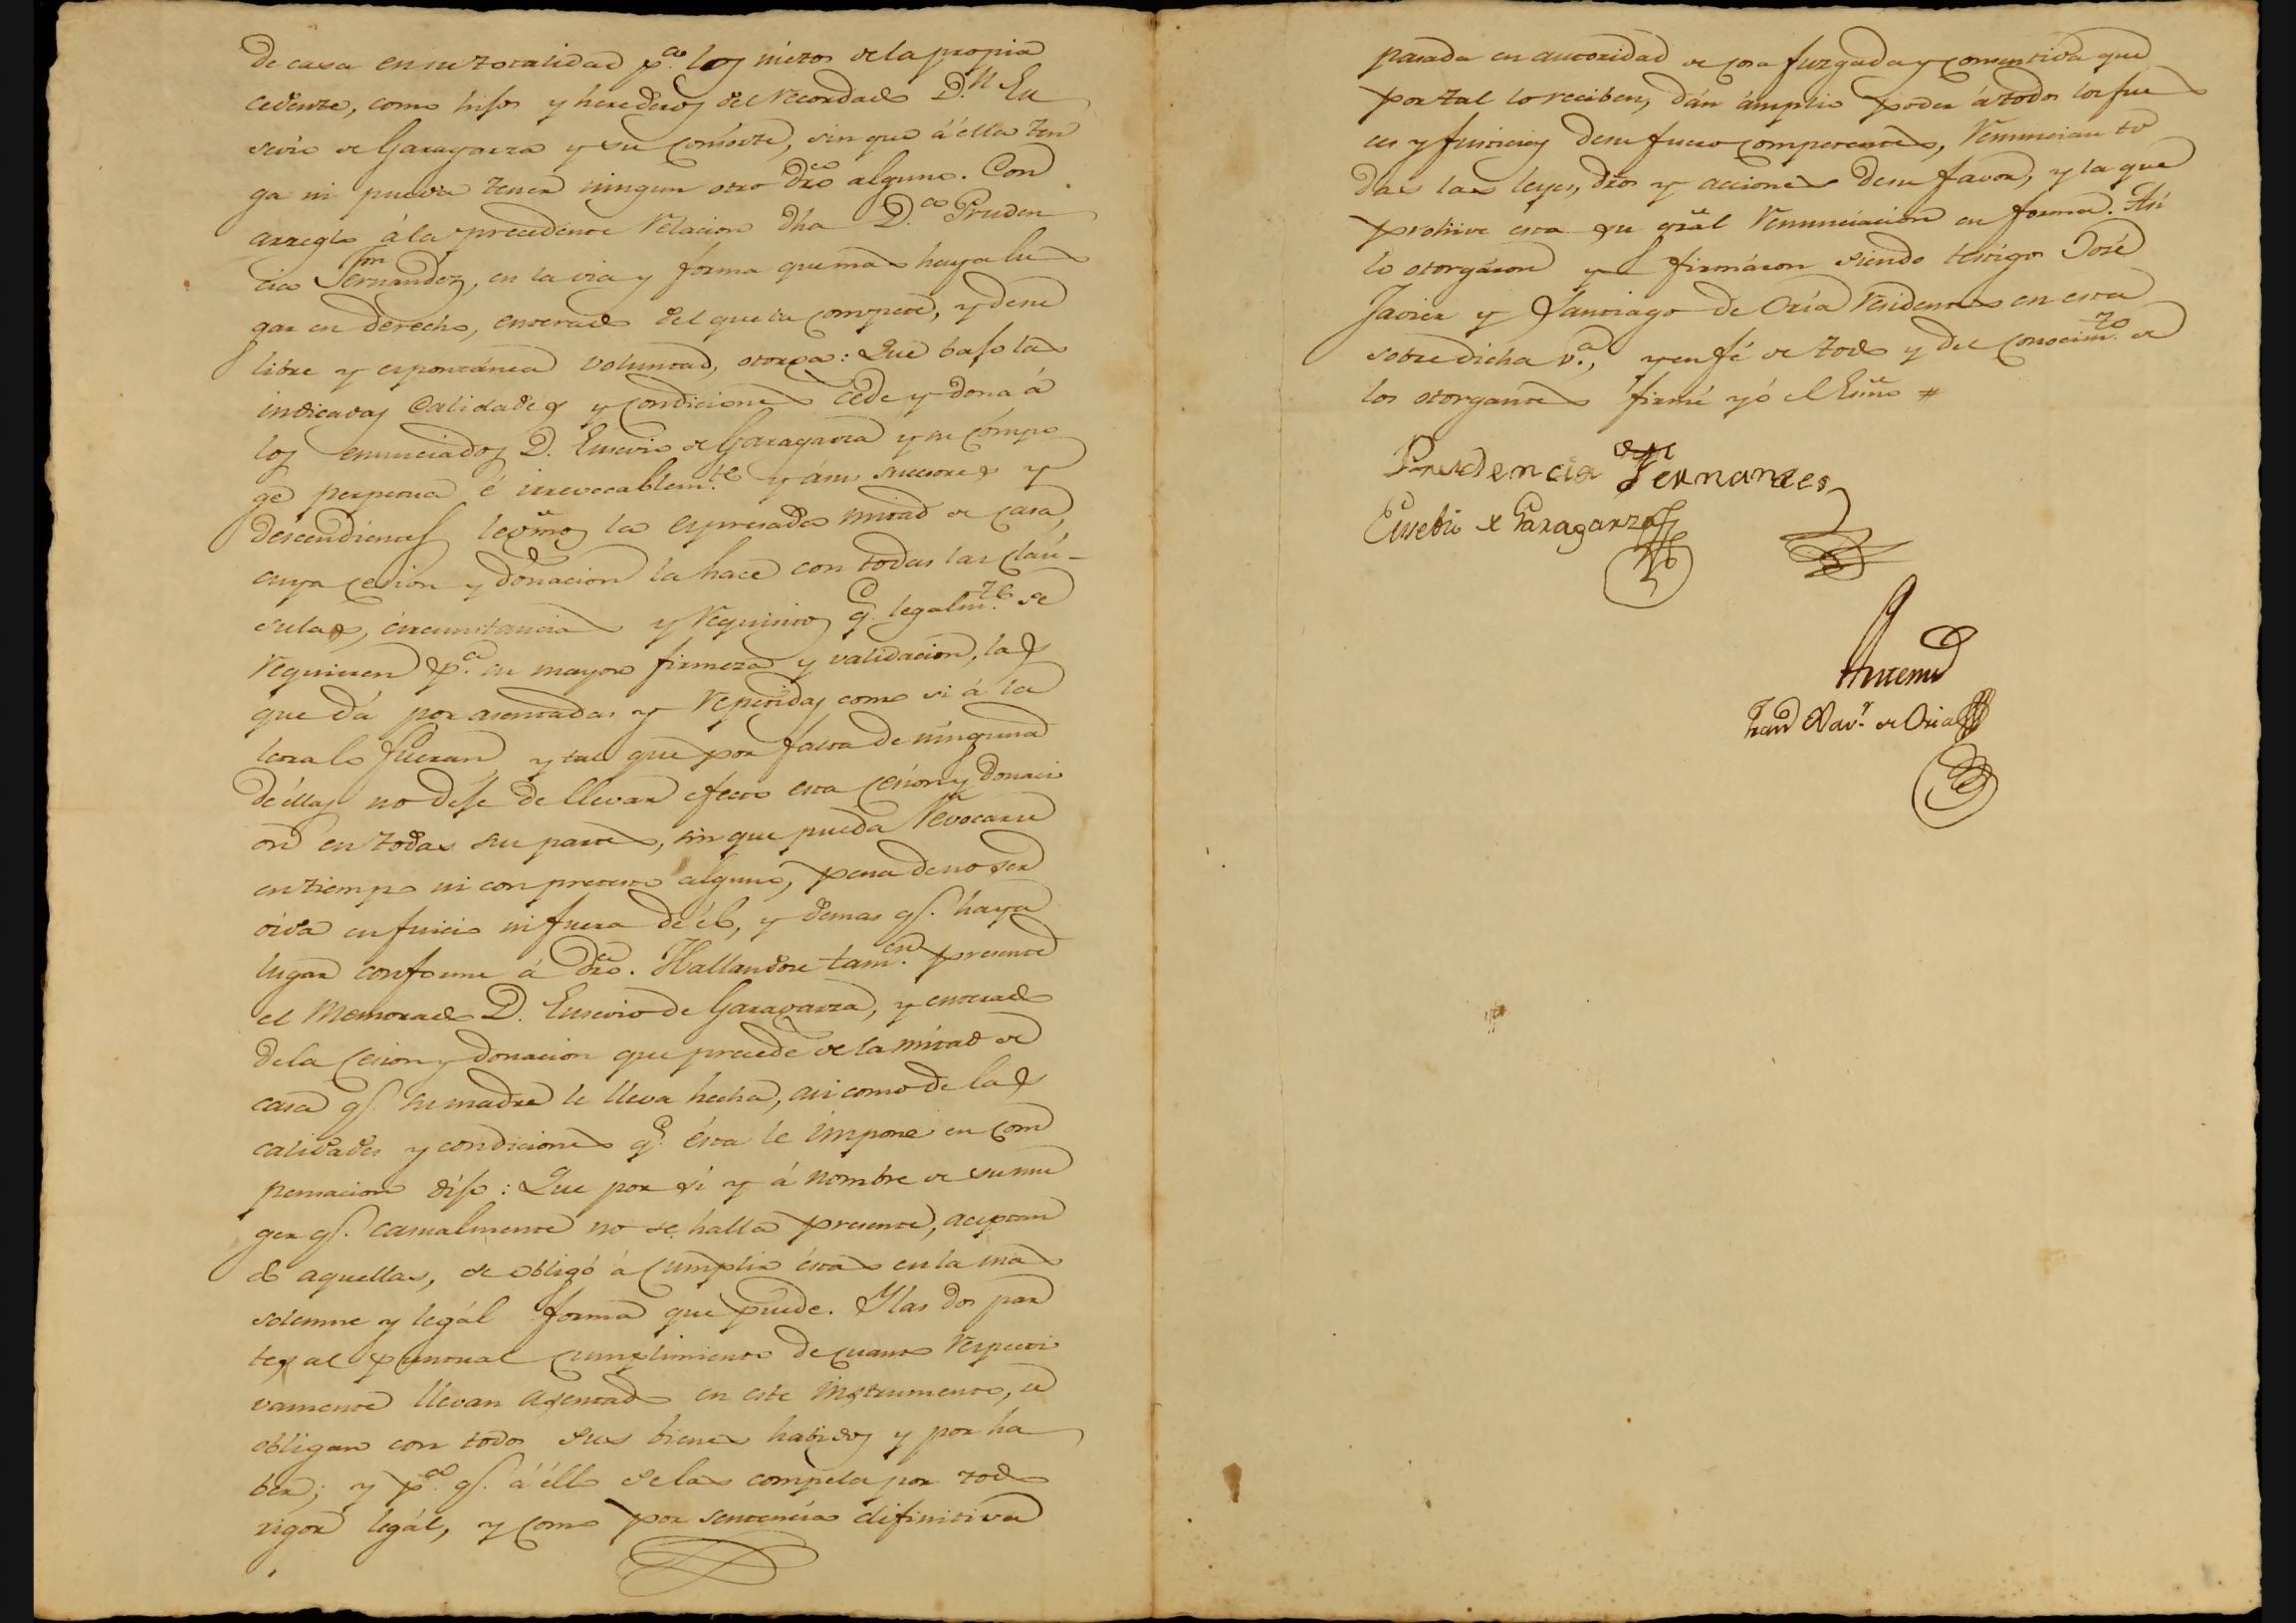 de casa en su totalidad p.ª los nietos de la propia
cedente, como hijos y herederos del recordado D.n Eu
sevio de Garagarza y su consorte, sin que á ella ten
ga ni pueda tener ningun otro dro alguno. Con
arreglo á la precedente relacion dha D.ª Pruden
cia Fernandez, en la via y forma que mas haya lu
gar en derecho, enterada del que la compete, y de su
libre y espontánea voluntad, otorga: Que bajo las
indicadas calidades y condiciones cede y dona á
los enunciados D. Eusevio de Garagarza y su cónyu
ge perpetua é irrevocablem.te y á sus succesores y
descendientes legmos la espresada mitad de casa,
cuya cesion y donacion la hace con todas las claú-
sulas, circunstancias y requisitos q. legalm.te se
requieren p.ª su mayor firmeza y validacion, las
que dá por asentadas y repetidas como si á la
letra lo fueran y tal que por falta de ninguna
de éllas no deje de llevar efecto esta cesion y donaci
on en todas sus partes, sin que pueda revocarse
en tiempo ni con pretesto alguno, pena de no ser
oida en juicio ni fuera de él, y demas q. haya
lugar conforme á dro. Hallandose tam.en presente
el memorado D. Eusevio de Garagarza, y enterado
de la cesion y donacion que precede de la mitad de
casa q. su madre le lleva hecha, asi como de las
calidades y condiciones q. ésta le impone en com
pensacion dijo: Que por sí y á nombre de su mu
ger q. casualmente no se halla presente, aceptan
do aquellas, se obligó á cumplir éstas en la mas
solemne y legál forma que puede. Y las dos par
tes al puntual cumplimiento de cuanto respecti
vamente llevan asentado en este instrumento, se
obligan con todos sus bienes habidos y por ha
ber; y p.ª q. á éllo se las compela por todo
rigor legál, y como por sentencia difinitiva
pasada en autoridad de cosa juzgada y consentida que
por tal lo reciben, dán ámplio poder á todos los jue
ces y justicias de su fuero competentes, renuncian to
das las leyes, dros y acciones de su favor, y la que
prohive esta su grâl renunciacion en forma. Así
lo otorgáron y firmáron siendo testigos José
Javier y Santiago de Oria residentes en esta
sobredicha v.ª, y en fé de todo y del conocim.to de
los otorgantes firmé yó el Esno #
Prudencia Fernandez
Eusebio de Garagarza
Antemi
Xav.r de Oria